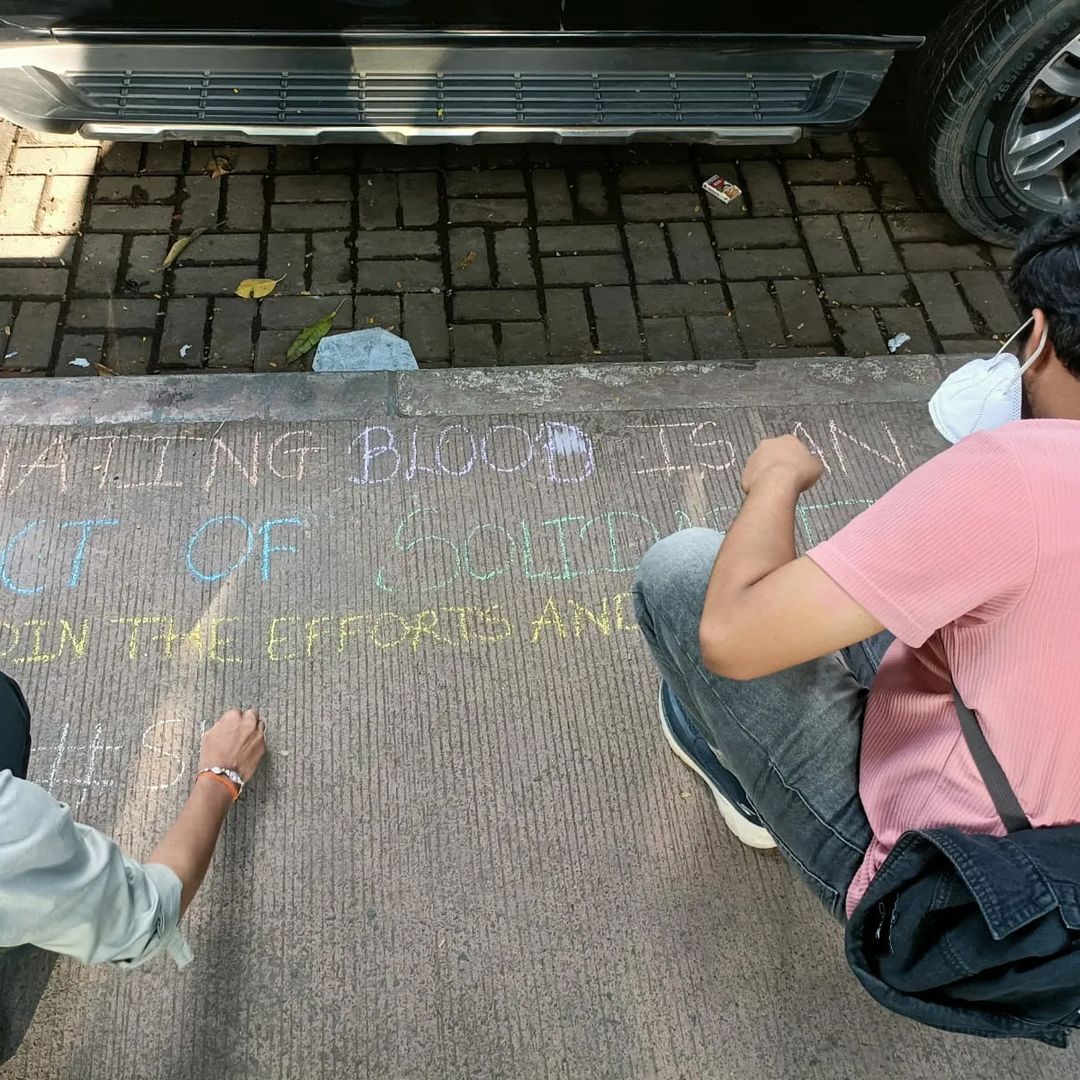 ATING BLOOD IS AN
CT OF SOLIDA
OIN THE EFFORTS AND
# S
265/60 R